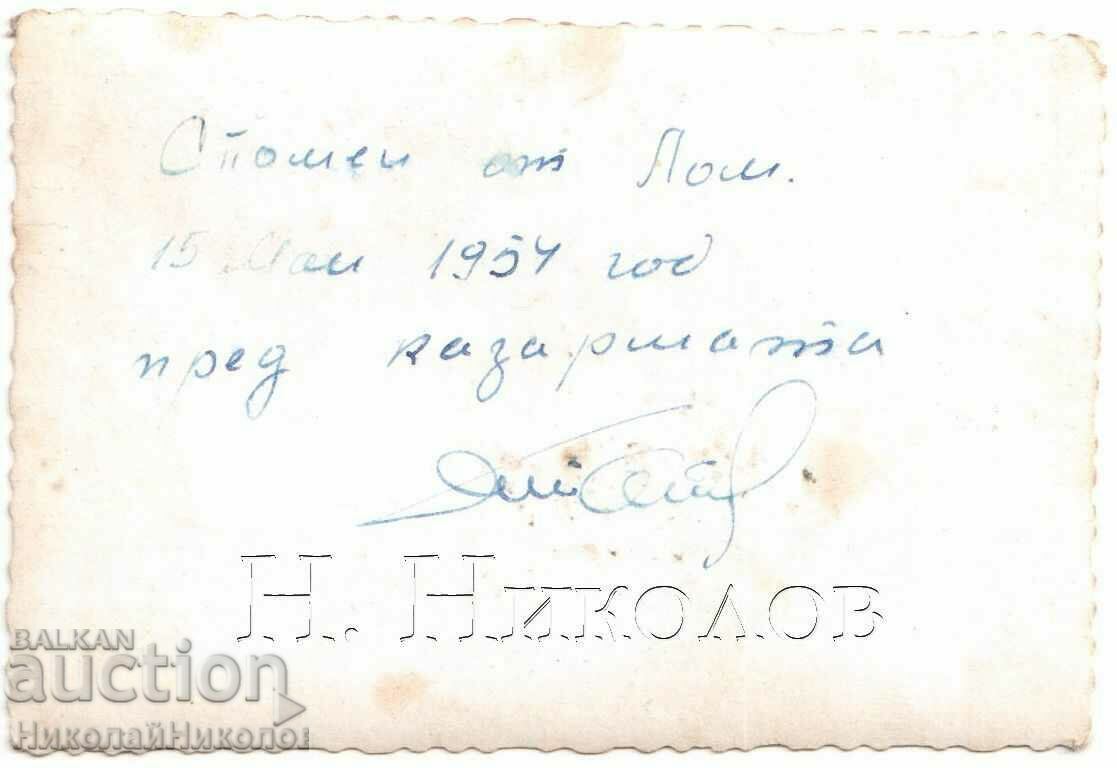 Спомен от Лом.
15 Май 1954 год
пред казармата
Н. Николов
BALKAN
auction
НиколайНиколов